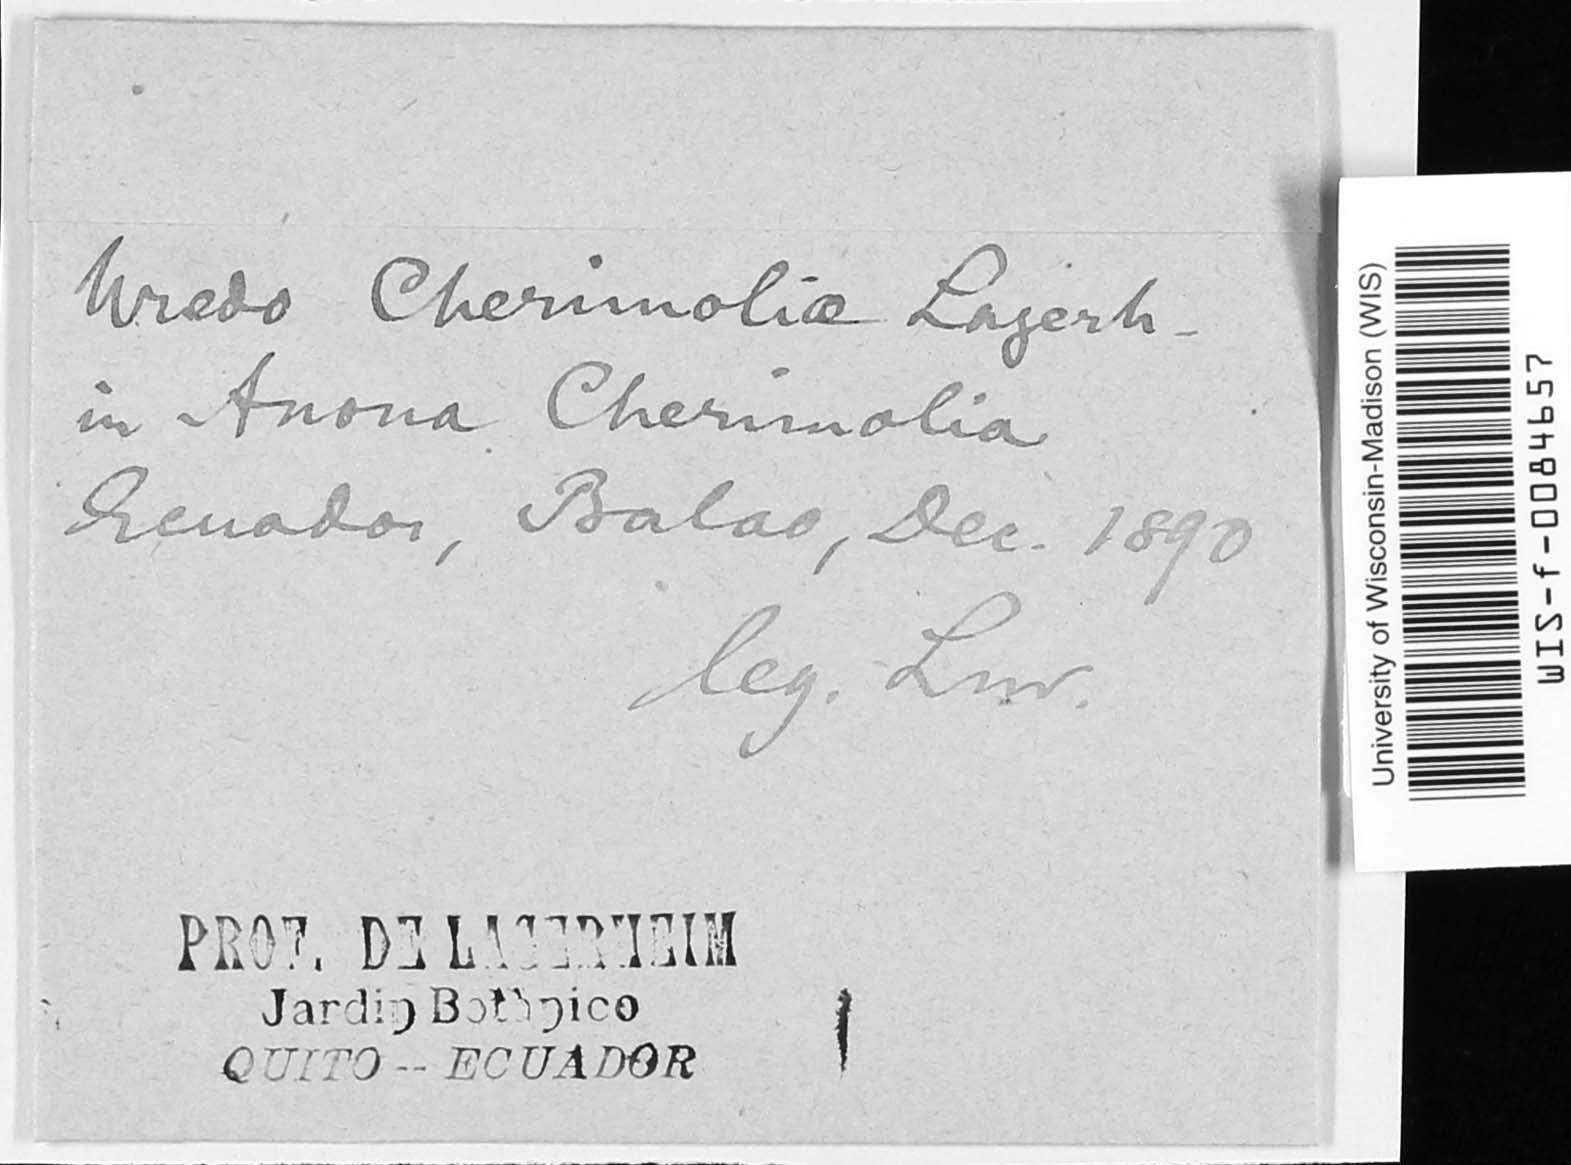 Uredo Cherimoliæ Lagerh.
in Anona Cherimolia
Ecuador, Balao, Dec. 1890
leg.
PROF. DE LAGERHEIM
Jardin Botánico
QUITO -- ECUADOR
University of Wisconsin-Madison (WIS)
WIS-f-0084657